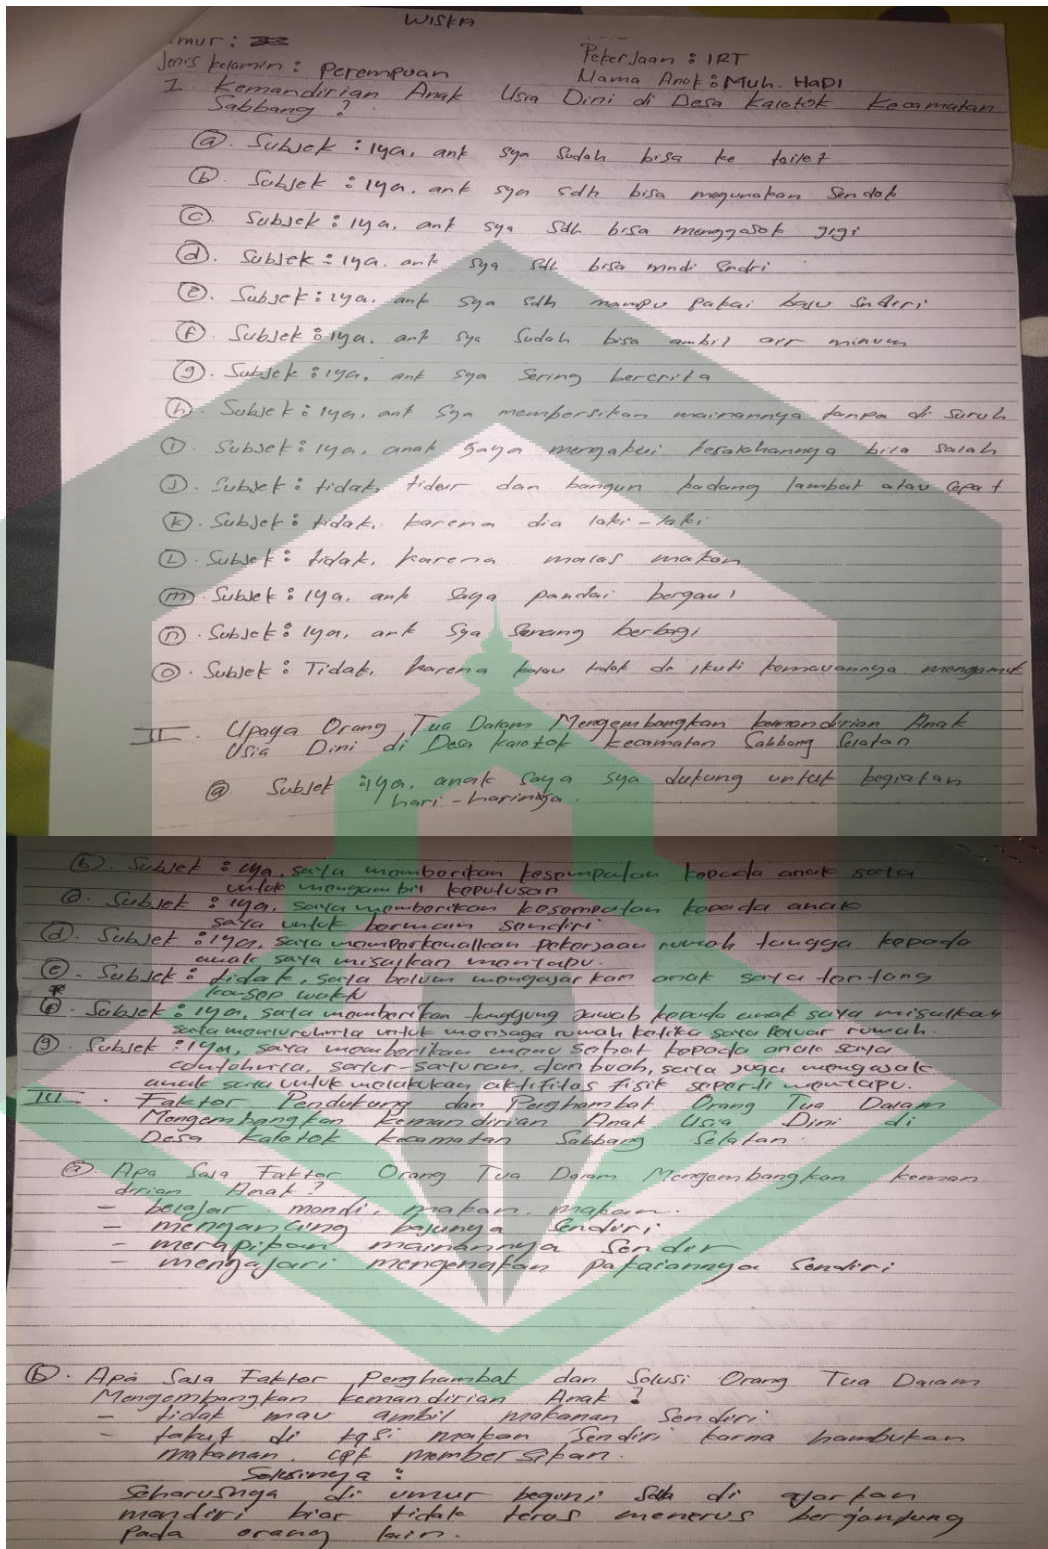 WISKA
umur :
Jenis kelamin : Perempuan
Pekerjaan : IRT
Nama Anak : Muh. HaDI
I. Kemandirian Anak Usia Dini di Desa Kalotok Kecamatan
Sabbang ?
(a). Subjek : Iya, ank sya sudah bisa ke toilet
(b). Subjek : Iya. ank sya sdh bisa megunakan sendok
(c). Subjek : Iya, ank sya sdh bisa menggosok gigi
(d). Subjek : Iya. ank sya sdh bisa mndi sndri
(e). Subjek : Iya. ank sya sdh mampu pakai baju sndiri
(f). Subjek : Iya. ank sya sudah bisa ambil air minum
(g). Subjek : Iya, ank sya sering bercrita
(h). Subjek : Iya, ank sya membersikan mainannya tanpa di suruh
(i). Subjek : Iya, anak saya mengakui kesalahannya bila salah
(j). Subjek : tidak, tidur dan bangun kadang lambat atau cepat
(k). Subjek : tidak, karena dia laki-laki
(L). Subjek : tidak, karena malas makan
(m). Subjek : Iya, ank saya pandai bergaul
(n). Subjek : Iya, ank sya senang berbagi
(o). Subjek : Tidak, karena kalau tidak di ikuti kemauannya mengamuk
II. Upaya Orang Tua Dalam Mengembangkan kemandirian Anak
Usia Dini di Desa Kalotok Kecamatan Sabbang Selatan
(a). Subjek : Iya, anak saya sya dukung untuk begiatan
hari-harinya.
(b). Subjek : Iya, saya memberikan kesempatan kepada anak saya
untuk mengambil keputusan
(c). Subjek : Iya. saya memberikan kesempatan kepada anak
saya untuk bermain sendiri
(d). Subjek : Iya, saya memperkenalkan pekerjaan rumah tangga kepada
anak saya misalkan menyapu.
(e). Subjek : tidak, saya belum mengajarkan anak saya tentang
konsep waktu
(f). Subjek : Iya, saya memberikan tanggung jawab kepada anak saya misalkan
saya menyuruhnya untuk menjaga rumah ketika saya keluar rumah.
(g). Subjek : Iya, saya memberikan menu sehat kepada anak saya
contohnya, sayur-sayuran, dan buah, saya juga mengajak
anak saya untuk melakukan aktifitas fisik seperti menyapu.
III. Faktor Pendukung dan Penghambat Orang Tua Dalam
Mengembangkan Kemandirian Anak Usia Dini di
Desa Kalotok Kecamatan Sabbang Selatan.
(a) Apa Saja Faktor Orang Tua Dalam Mengembangkan keman
dirian Anak ?
- belajar mandi, makan. makan.
- mengancing bajunya sendiri
- merapikan mainannya sendir
- mengajari mengenakan pakaiannya sendiri
(b). Apa Saja Faktor Penghambat dan Solusi Orang Tua Dalam
Mengembangkan kemandirian Anak ?
- tidak mau ambil makanan sendiri
- takut di kasi makan sendiri karna hamburkan
makanan. cpk membersikan.
Solusinya :
Seharusnya di umur begini sdh di ajarkan
mandiri biar tidak terus menerus bergantung
pada orang lain.